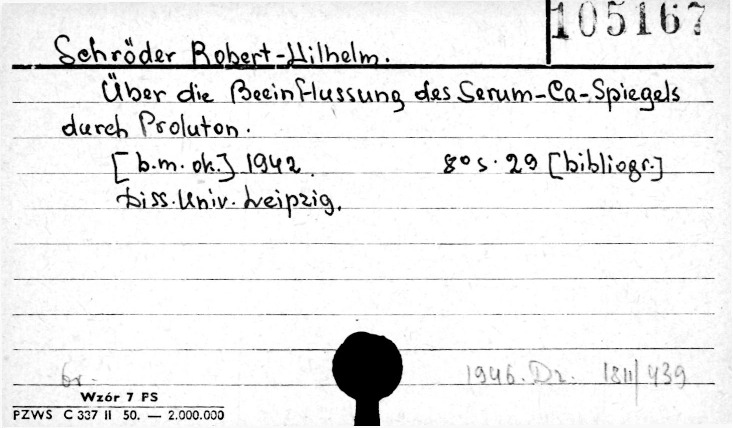 105167
Schröder Robert-Wilhelm.
Über die Beeinflussung des Serum-Ca-Spiegels
durch Proluton.
[b.m. ok.] 1942 8° s. 29 [bibliogr.]
Diss. Univ. Leipzig.
br. 1946. Dr. 1311/439
Wzór 7 PS
PZWS C 337 II 50. — 2.000.000